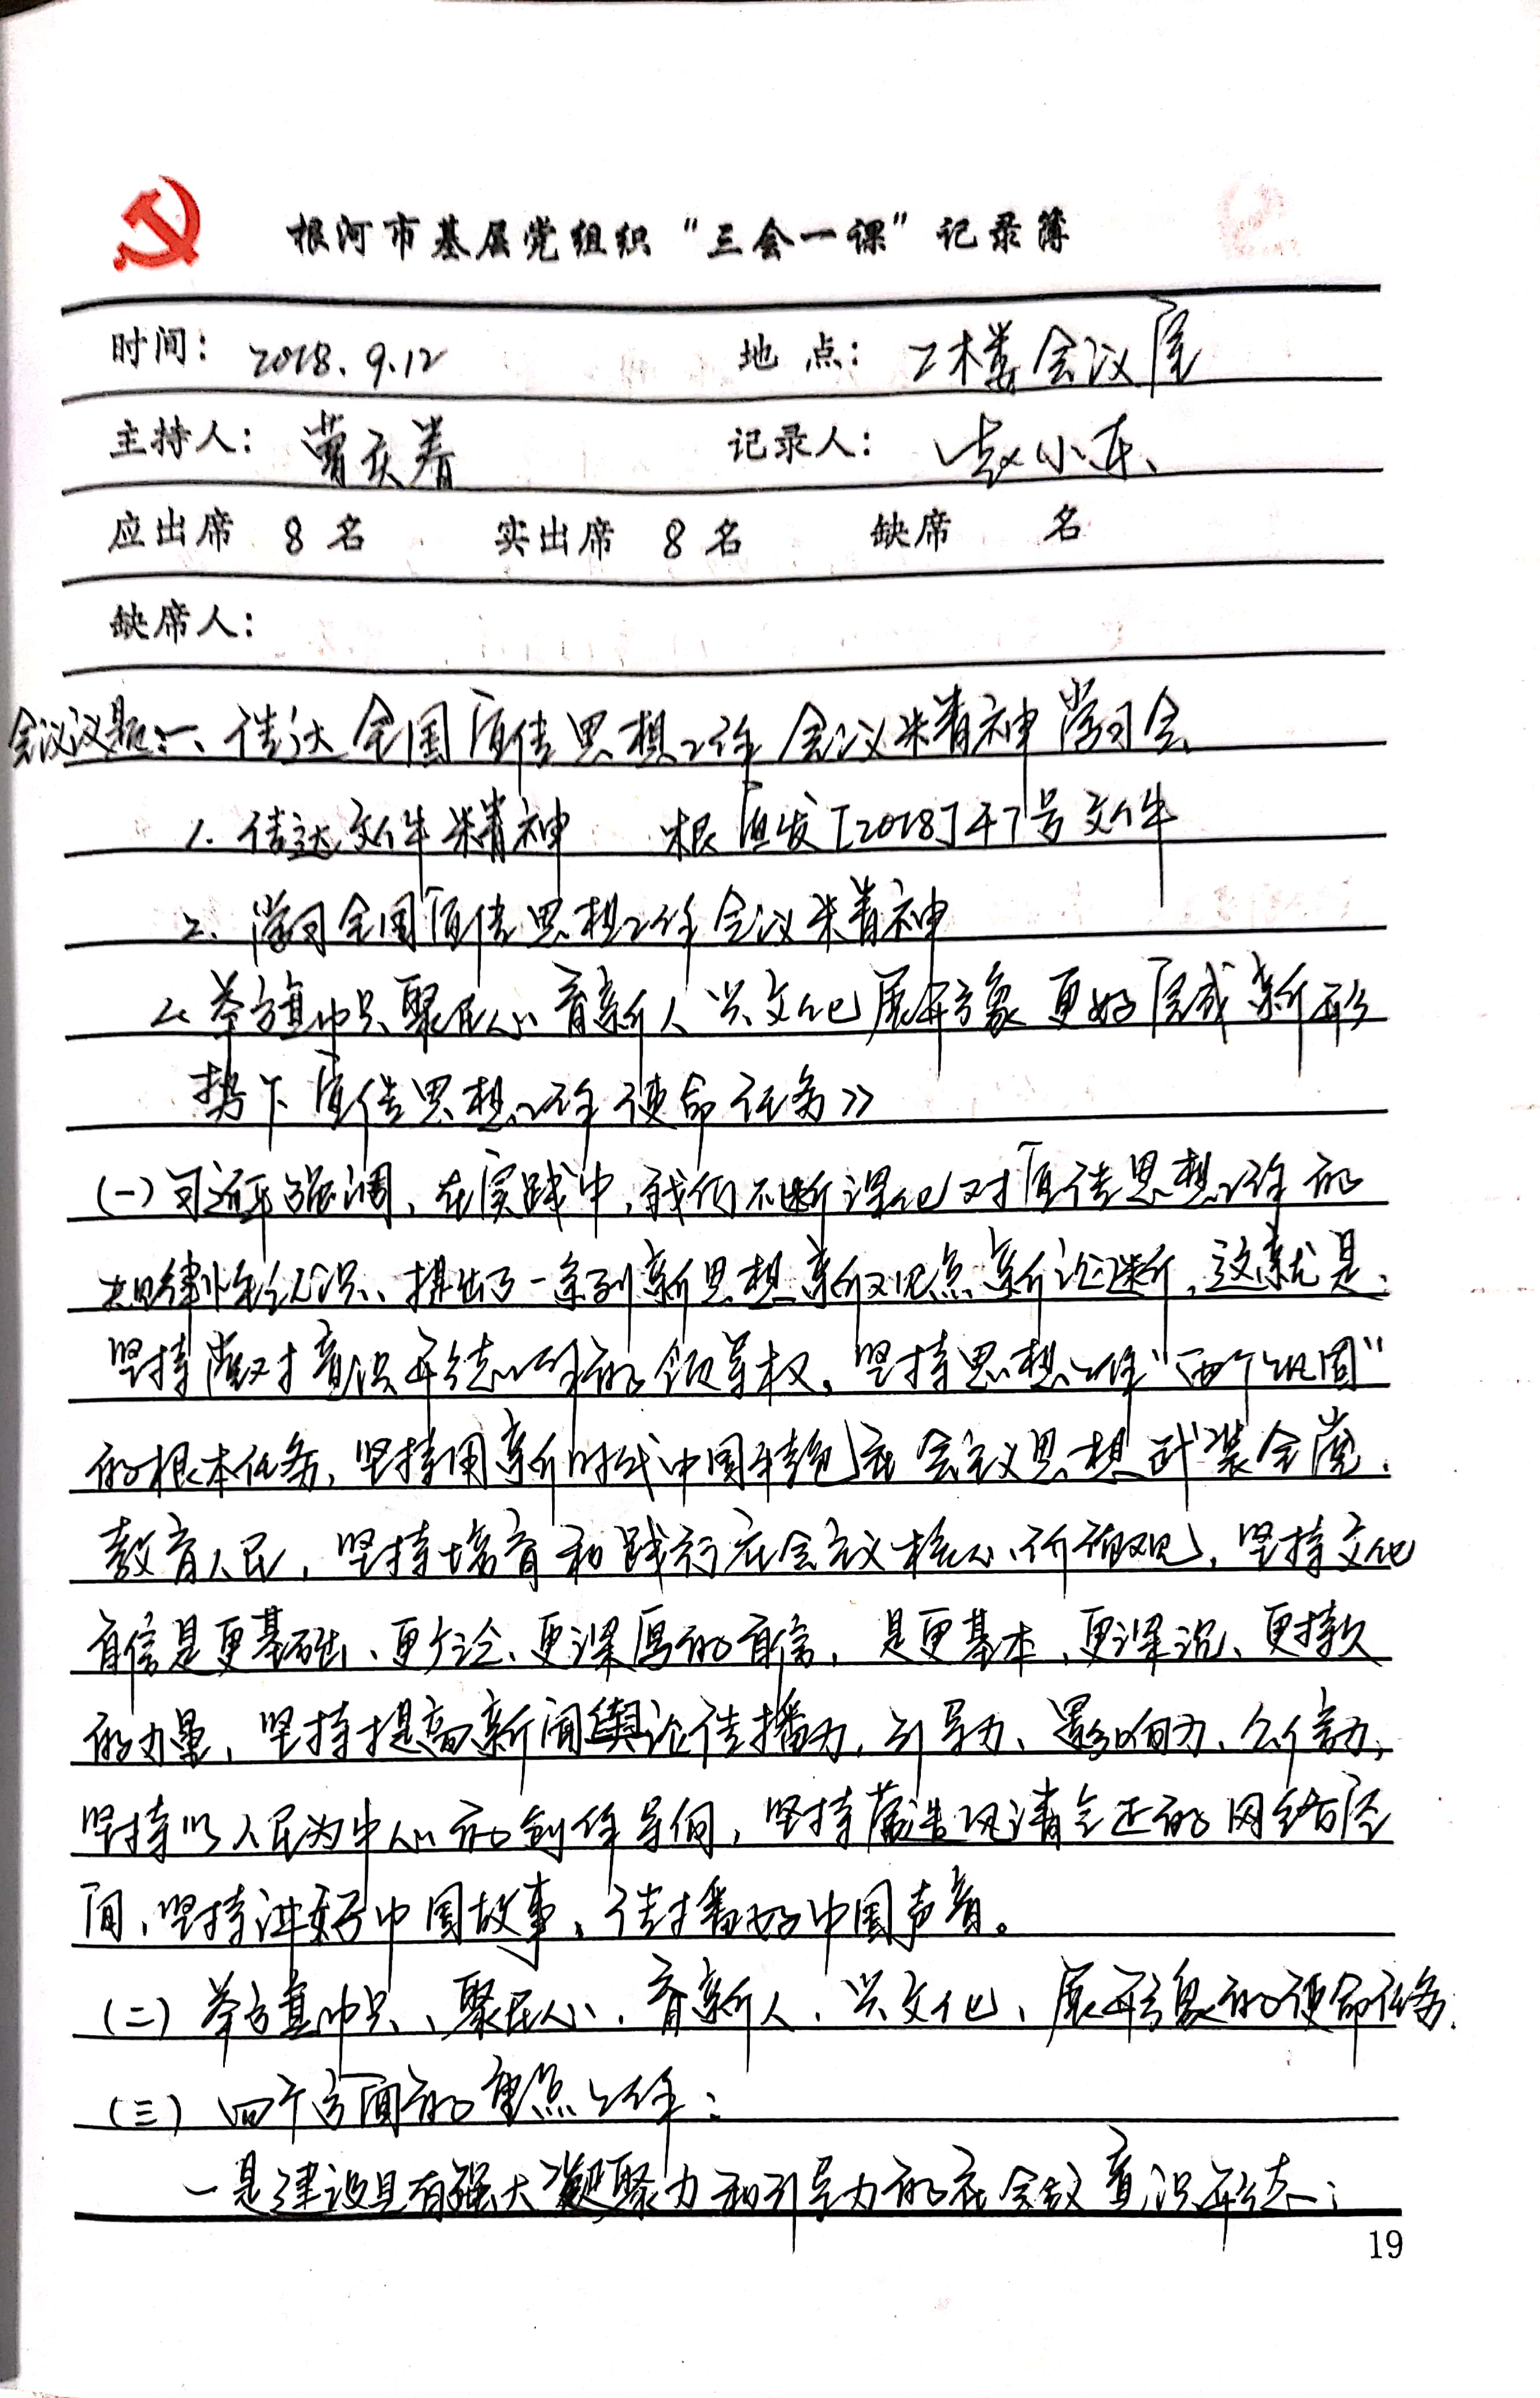 根河市基层党组织“三会一课”记录簿
时间：2018.9.12 地点：2楼会议室
主持人： 记录人：赵小东
应出席 8 名 实出席 8 名 缺席 名
缺席人：
会议议题：一、传达全国宣传思想工作会议精神学习会
1. 传达文件精神 根宣发[2018]47号文件
2. 学习全国宣传思想工作会议精神
《举旗帜聚民心育新人兴文化展形象更好完成新形
势下宣传思想工作使命任务》
(一)习近平强调，在实践中，我们不断深化对宣传思想工作的
规律性认识、提出了一系列新思想新观点新论断，这就是：
坚持党对意识形态工作的领导权，坚持思想工作“两个巩固”
的根本任务，坚持用新时代中国特色社会主义思想武装全党、
教育人民，坚持培育和践行社会主义核心价值观，坚持文化
自信是更基础、更广泛、更深厚的自信，是更基本、更深沉、更持久
的力量，坚持提高新闻舆论传播力，引导力、影响力、公信力，
坚持以人民为中心的创作导向，坚持营造风清气正的网络空
间，坚持讲好中国故事、传播好中国声音。
(二)举旗帜、聚民心、育新人、兴文化、展形象的使命任务：
(三)四个方面的重点工作：
一是建设具有强大凝聚力和引导力的社会主义意识形态；
19